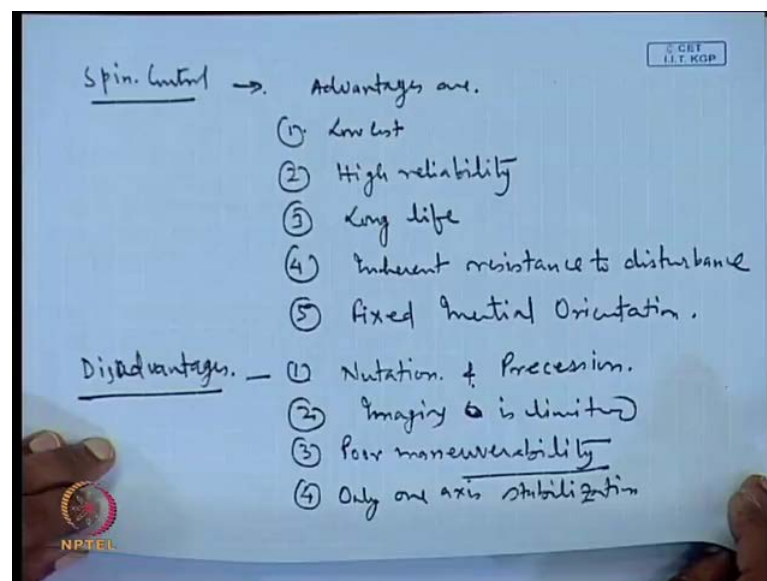 © CET
I.I.T. KGP
Spin. Control → Advantages are.
(1). Low cost
(2) High reliability
(3) Long life
(4) Inherent resistance to disturbance
(5) Fixed Inertial Orientation.
Disadvantages. — (1) Nutation. & Precession.
(2) Imaging is limited
(3) Poor maneuverability
(4) Only one axis stabilization
NPTEL